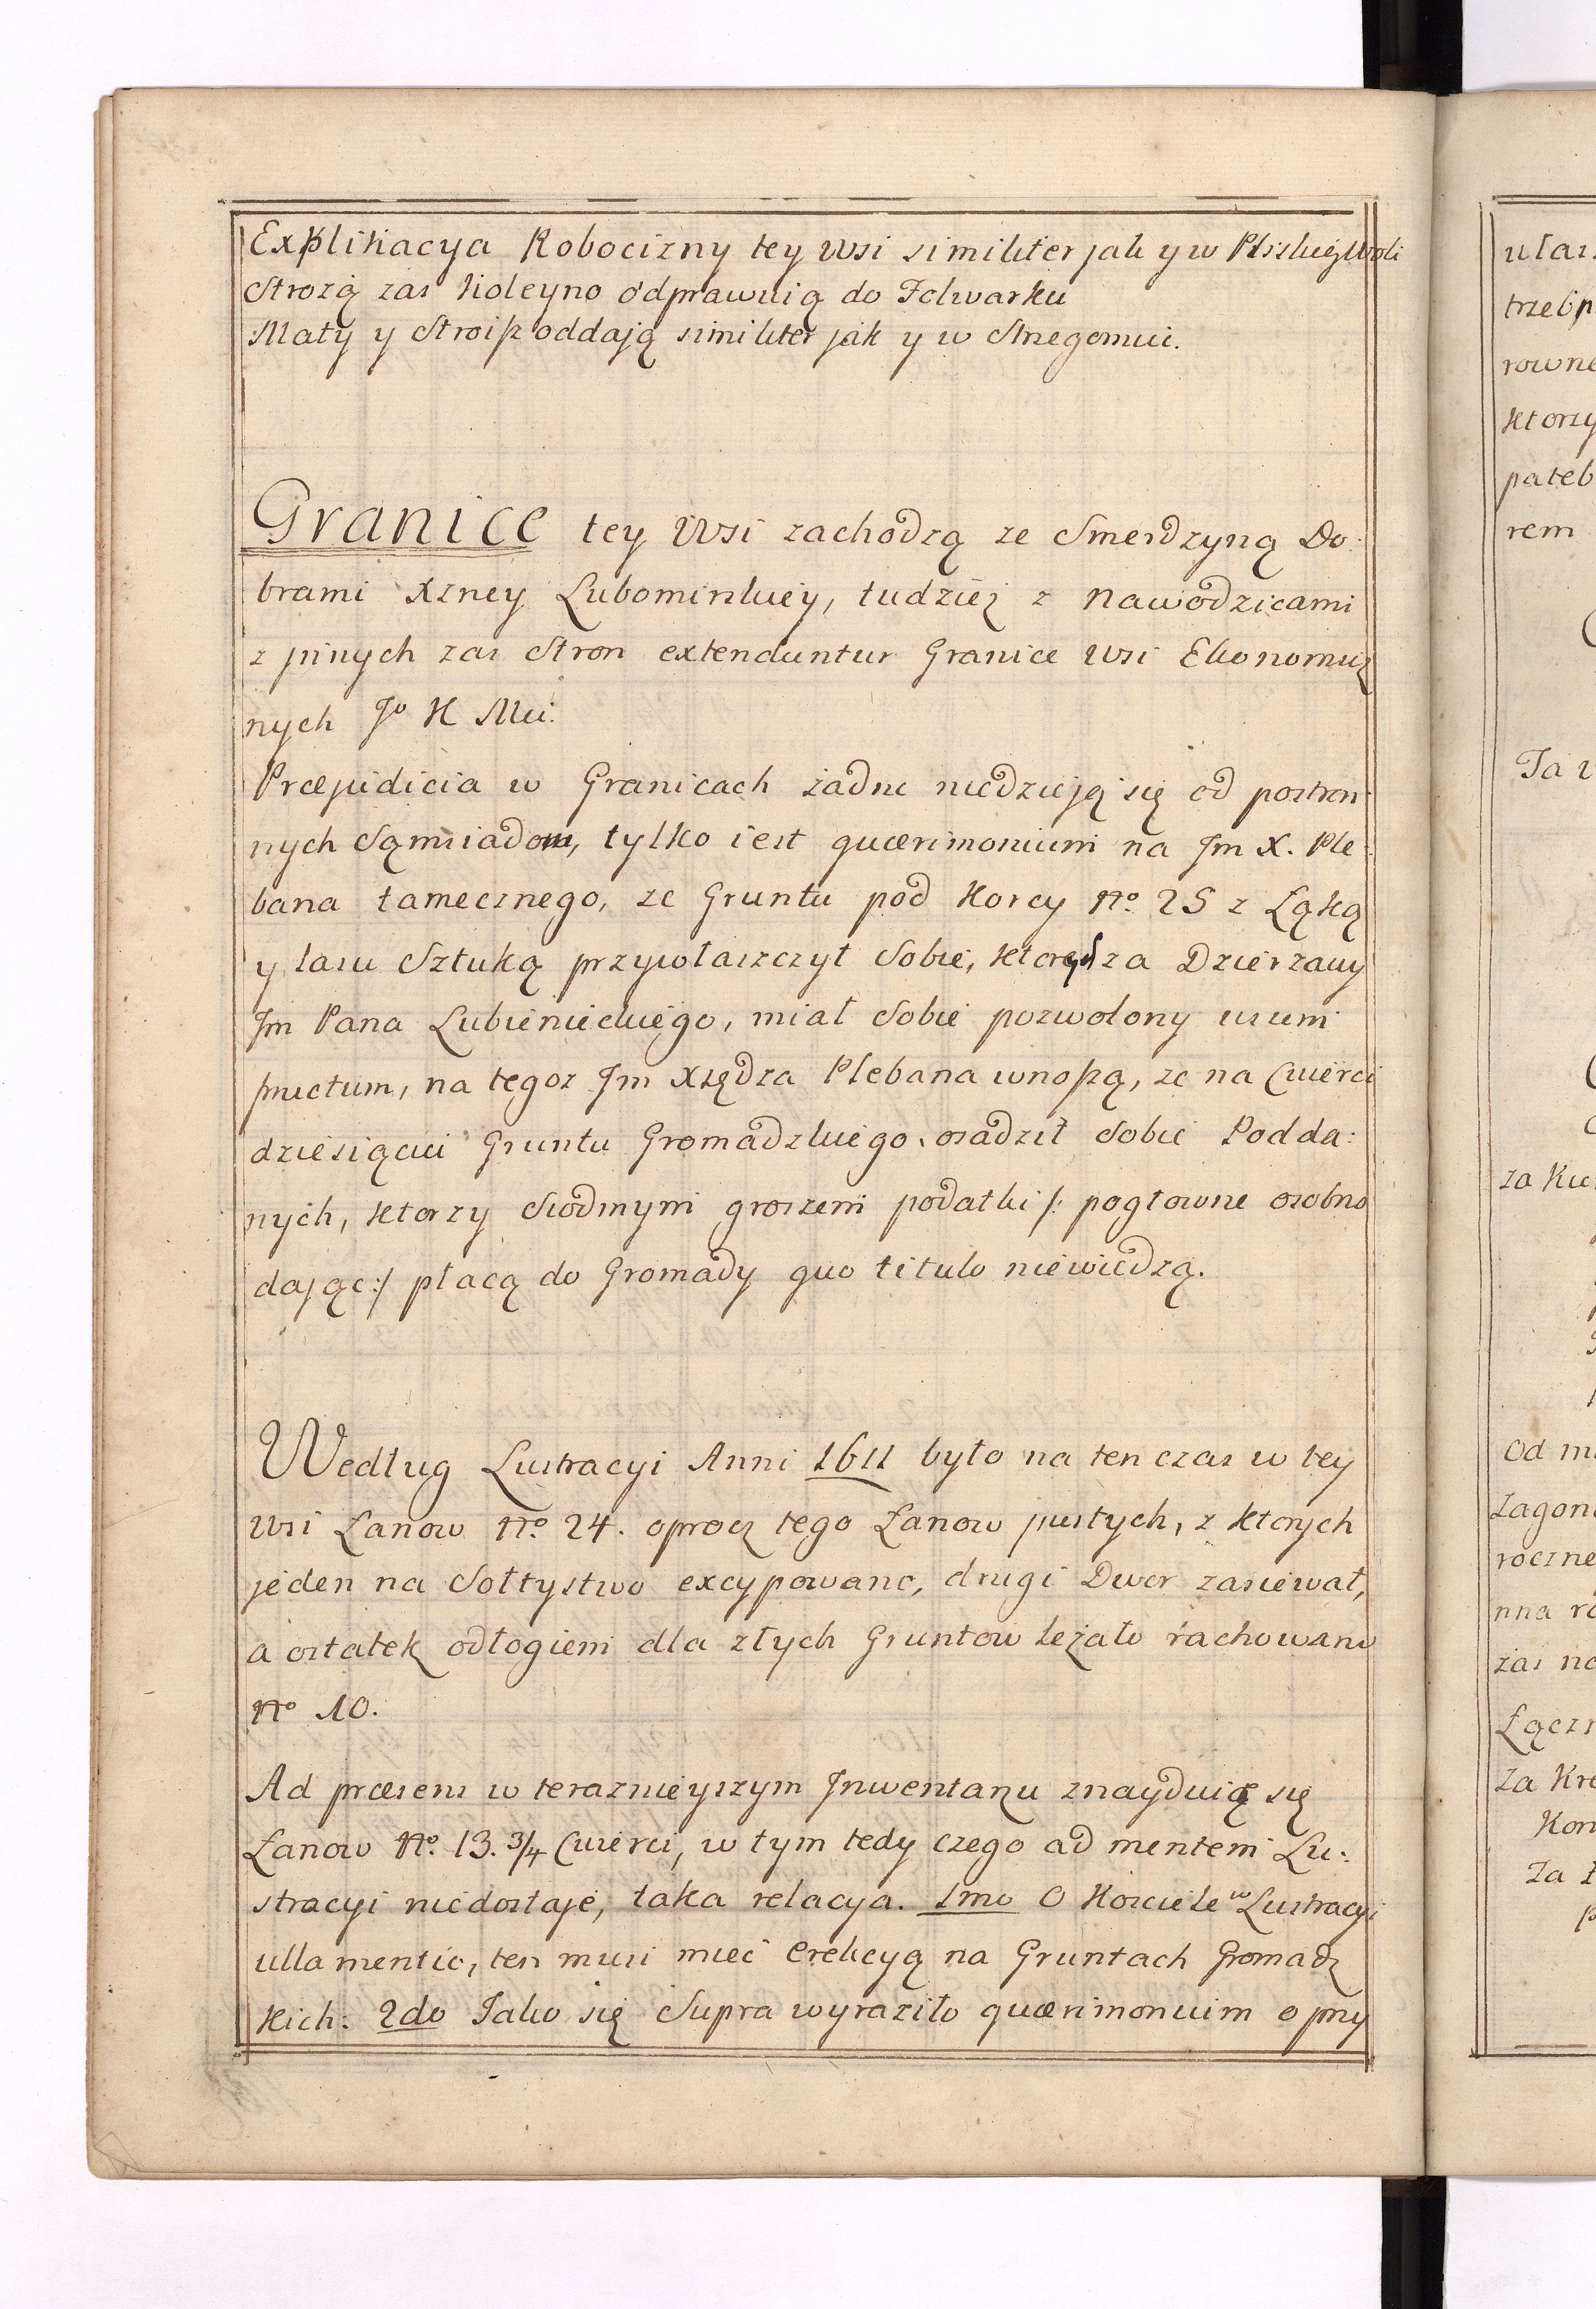 Explikacya Robocizny tey Wsi similiter jak y w Pliskiey Woli
Strozą zas koleyno odprawuią do Folwarku
Maty y Stroisz oddaią similiter jak y w Strzegomiu.
Granice tey Wsi zachodzą ze Smerdzyną Do:
brami Xzney Lubomirskiey, tudziez z Nawodzicami
z jnnych zas Stron extenduntur Granice Wsi Ekonomicz
nych Jo K Mci.
Præjudicia w Granicach żadne niedzieją się od postron
nych Sąmsiadow, tylko iest quærimonium na Jm X. Ple:
bana tamecznego, ze Gruntu pod Korcy No. 25 z Łąką
y lasu Sztuką przywłaszczył Sobie, ktorą za Dzierzawy
Jm Pana Lubienieckiego, miał Sobie pozwolony usum
fructum, na tegoz Jm Xsiędza Plebana wnoszą, ze na Cwierci
dziesiąciu Gruntu Gromadzkiego osadził Sobie Podda:
nych, ktorzy siodmym groszem podatki /: pogłowne osobno
dając :/ płacą do Gromady quo titulo niewiedzą.
Według Lustracyi Anni 1611 było na ten czas w tey
Wsi Łanow No. 24. oprocz tego Łanow pustych, z ktorych
jeden na Sołtystwo excypowano, drugi Dwor zasiewał,
a ostatek odłogiem dla złych Gruntow leżało rachowano
No 10.
Ad præsens w teraznieyszym Jnwentarzu znayduią się
Łanow No. 13. 3/4 Cwierci, w tym tedy czego ad mentem Lu:
stracyi niedostaje, taka relacya. 1mo O Kosciele w Lustracyi
ulla mentio, ten musi mieć erekcyą na Gruntach Gromadz
kich: 2do Jako się Supra wyraziło quærimonium o przy
ulas
trzebp
rowne
ktorzy
pateb
rem
Ta
za
Od
Zagon
roczne
nna
zas
Łączn
Za Kre
Kon
Za